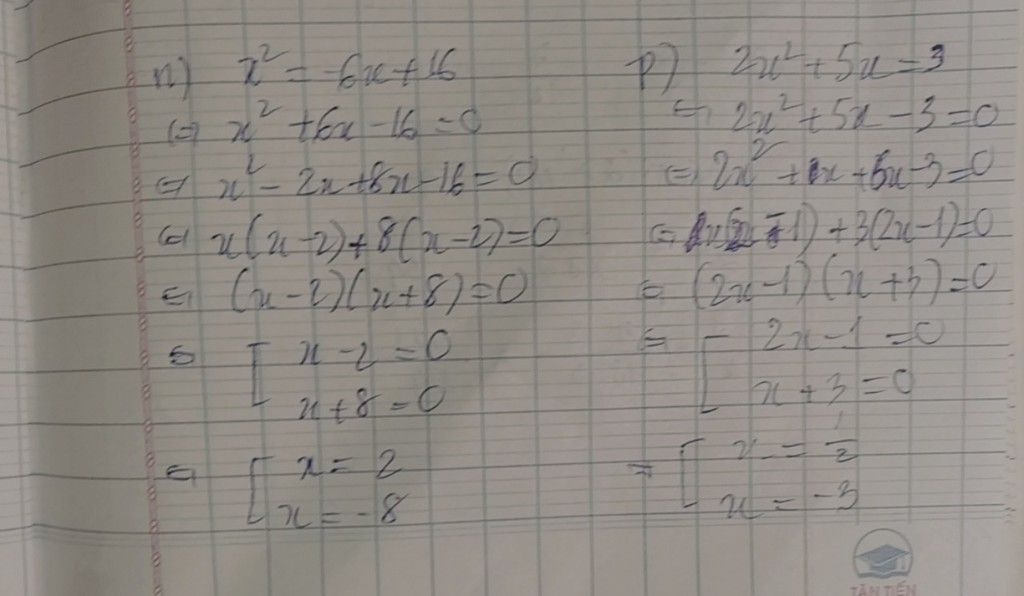 n) x² = -6x + 16
⇔ x² + 6x - 16 = 0
⇔ x² - 2x + 8x - 16 = 0
⇔ x(x - 2) + 8(x - 2) = 0
⇔ (x - 2)(x + 8) = 0
⇔ [ x - 2 = 0
x + 8 = 0
⇔ [ x = 2
x = -8
p) 2x² + 5x = 3
⇔ 2x² + 5x - 3 = 0
⇔ 2x² + x + 6x - 3 = 0
⇔ - 1) + 3(2x - 1) = 0
⇔ (2x - 1)(x + 3) = 0
⇔ [ 2x - 1 = 0
x + 3 = 0
⇔ [ x = 1/2
x = -3
TÂN TIẾN